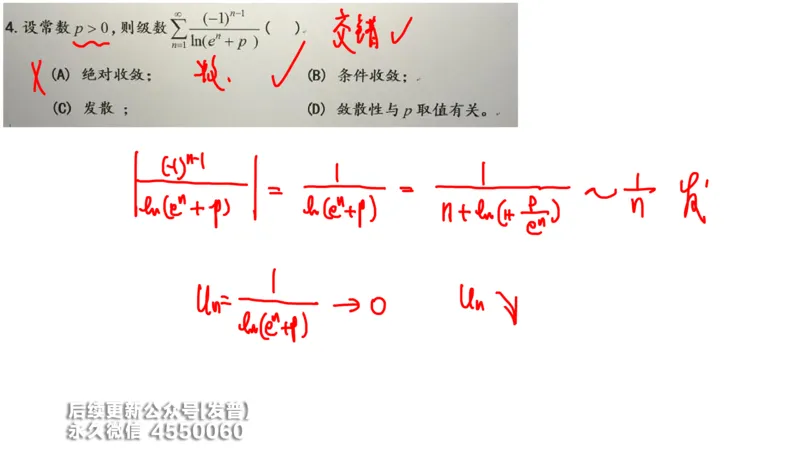 4. 设常数 p > 0, 则级数 ∑_{n=1}^{∞} (-1)^{n-1} / ln(e^n + p) ( )。 交错 ✓
✗ (A) 绝对收敛; ✓ (B) 条件收敛;
(C) 发散 ; (D) 敛散性与 p 取值有关。
|(-1)^{n-1} / ln(e^n + p)| = 1 / ln(e^n + p) = 1 / (n + ln(1 + p/e^n)) ~ 1/n 发
U_n = 1 / ln(e^n + p) → 0 U_n ↘
后续更新公众号[发普]
永久微信 4550060